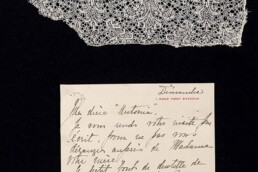 Dimanche
Ma chère "Antonia"
Je vous rends votre visite par
écrit, pour ne pas vous
déranger auprès de Madame
votre mère!
petit fond de dentelle de